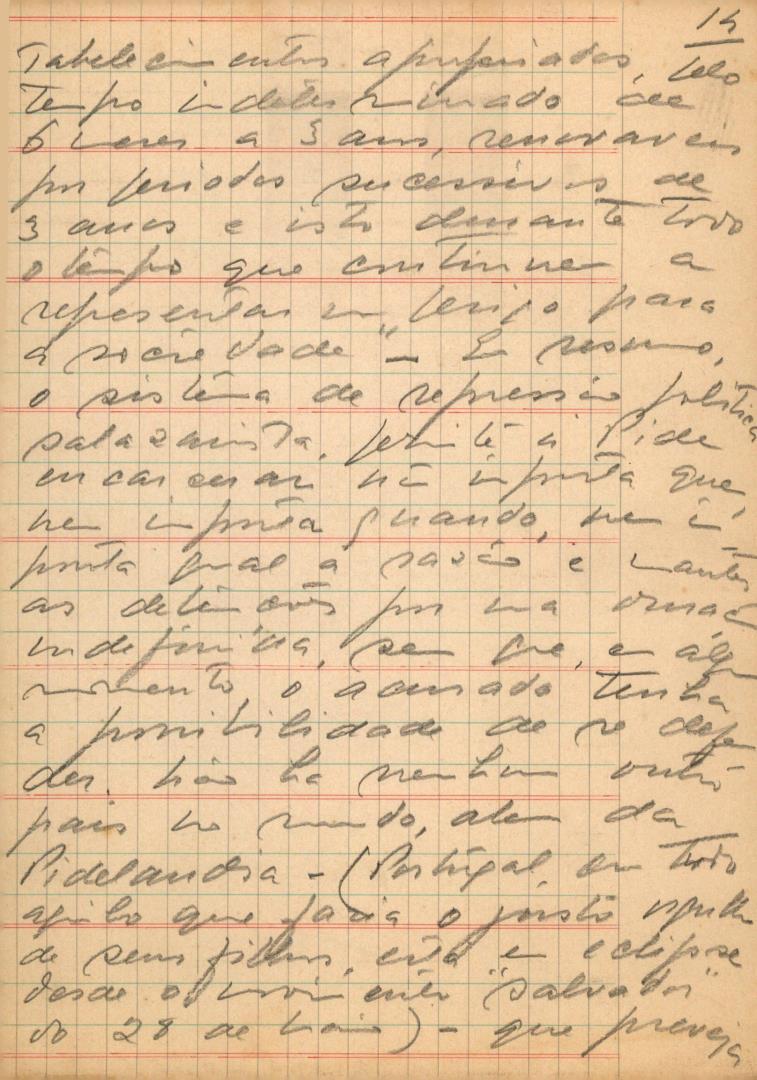 14
tabelecimentos apropriados, pelo
tempo indeterminado de
6 meses a 3 anos, renovaveis
por periodos sucessivos de
3 anos e isto durante todo
o tempo que continuem a
representar um perigo para
a sociedade" — Em resumo,
o sistema de repressão politica
salazarista, permite à Pide
encarcerar não importa quem,
nem importa quando, nem im-
porta qual a razão e manter
as detenções por uma duração
indefinida, sem que, em algum
momento, o acusado tenha
a possibilidade de se defen
der. Não ha nenhum outro
pais no mundo, alem da
Pidelandia - (Portugal, em todo
aquilo que fazia o justo orgulho
de seus filhos, está em eclipse
desde o movimento "salvador"
do 28 de Maio) - que preveja